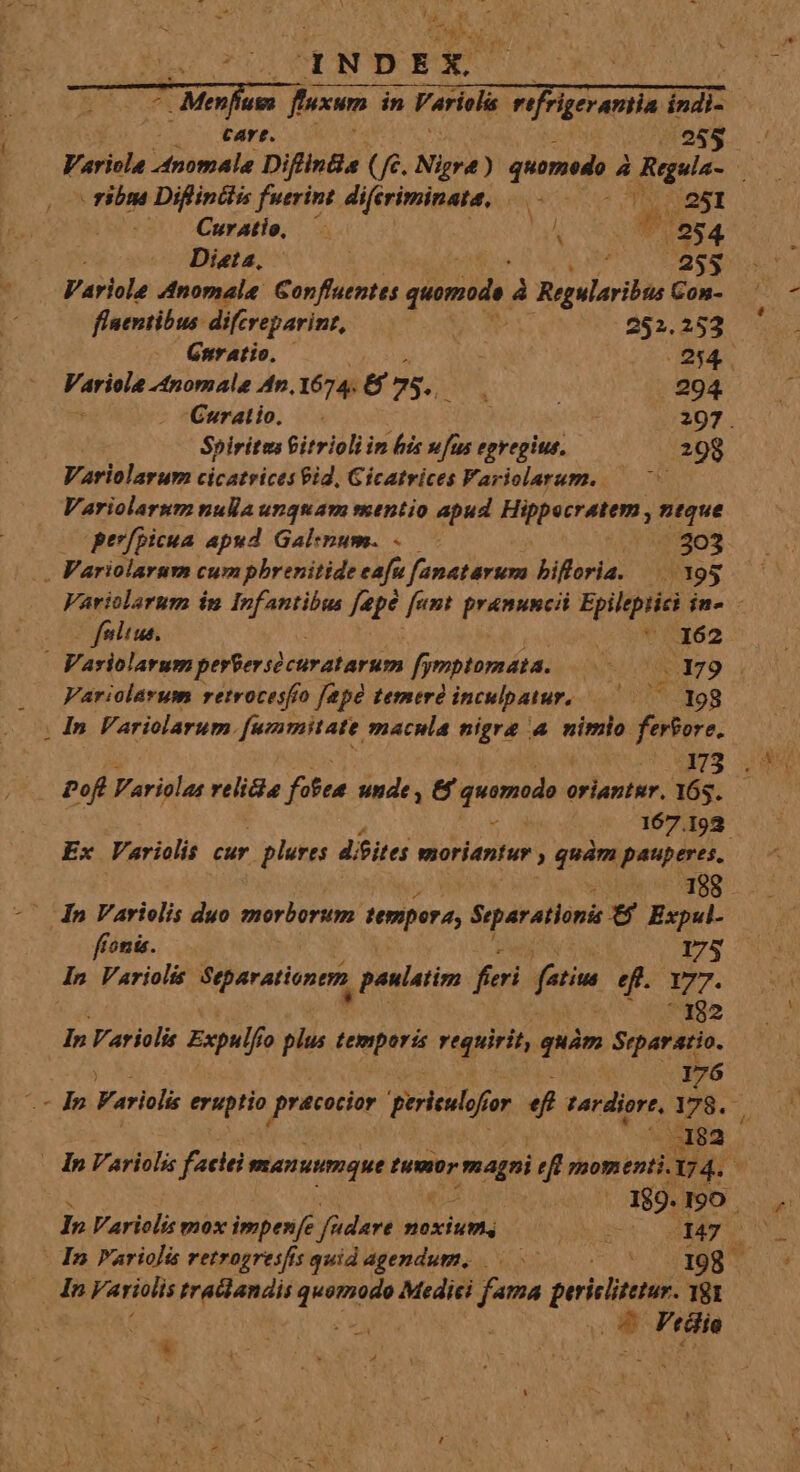 INDEX.
Menſium fluxum in Variolis refrigerantia indi-
care. 255
Variolæ Anomalæ Diſtinctæ (ſc. Nigræ) quomodo à Regula-
ribus Diſtinctis fuerint diſcriminatæ, 251
Curatio, 254
Diæta, 255
Variolæ Anomalæ Confluentes quomodo à Regularibus Con-
fluentibus diſcreparint, 252.253
Curatio. 254
Variolæ Anomalæ An. 1674. & 75. 294
Curatio. 297.
Spiritus Vitrioli in his uſus egregius. 298
Variolarum cicatrices vid, Cicatrices Variolarum.
Variolarum nulla unquam mentio apud Hippocratem, neque
perſpicua apud Galenum. 303
Variolarum cum phrenitide caſu ſanatarum hiſtoria. 195
Variolarum in Infantibus ſæpè ſunt prænuncii Epileptici in-
ſultus. 162
Variolarum perversè curatarum ſymptomata. 179
Variolarum retrocesſio ſæpè temerè inculpatur. 198
In Variolarum ſummitate macula nigra a nimio fervore.
173
Poſt Variolas relictæ foveæ unde, & quomodo oriantur. 165.
167.192
Ex Variolis cur plures divites moriantur, quàm pauperes.
188
In Variolis duo morborum tempora, Separationis & Expul-
ſionis. 175
In Variolis Separationem paulatim fieri ſatius eſt. 177.
182
In Variolis Expulſio plus temporis requirit, quàm Separatio.
176
In Variolis eruptio præcocior periculoſior eſt tardiore, 178.
182
In Variolis faciei manuumque tumor magni eſt momenti. 174.
189.190
In Variolis mox impenſe ſudare noxium, 147
In Variolis retrogresſis quid agendum. 198
In Variolis tractandis quomodo Medici fama periclitetur. 181
Vectio